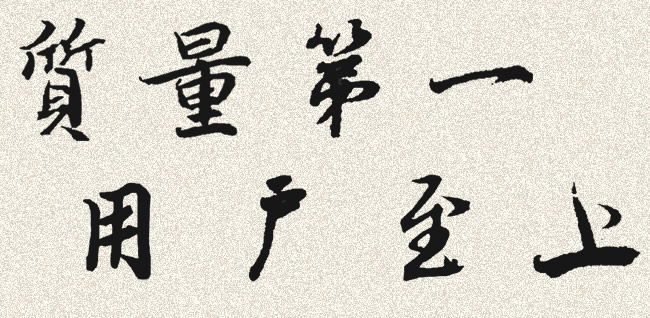 質量第一
用户至上